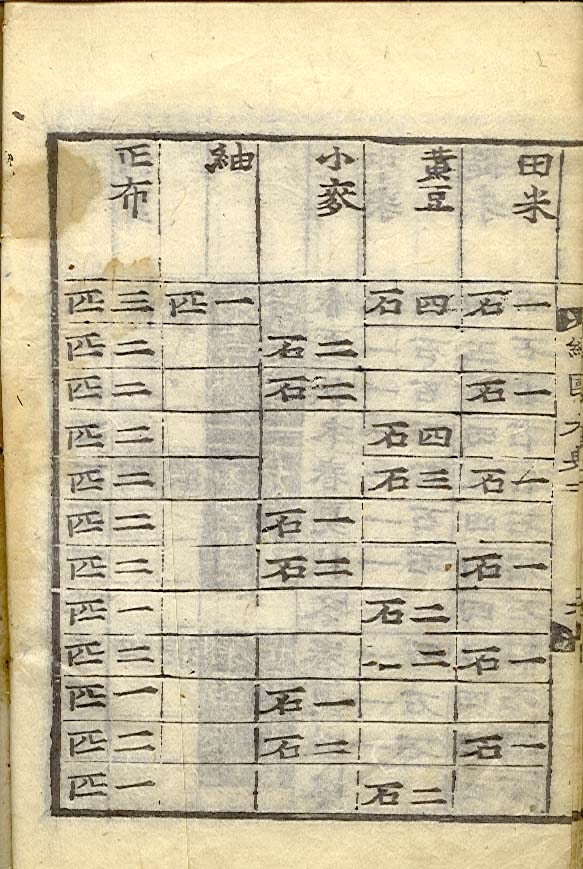 經國大典二
田米 黃豆 小麥 紬 正布
一石 四石 一匹 三匹
二石 二匹
一石 二石 二匹
四石 二匹
一石 三石 二匹
一石 二匹
一石 二石 二匹
二石 一匹
一石 二 二匹
一石 一匹
一石 二石 二匹
二石 一匹